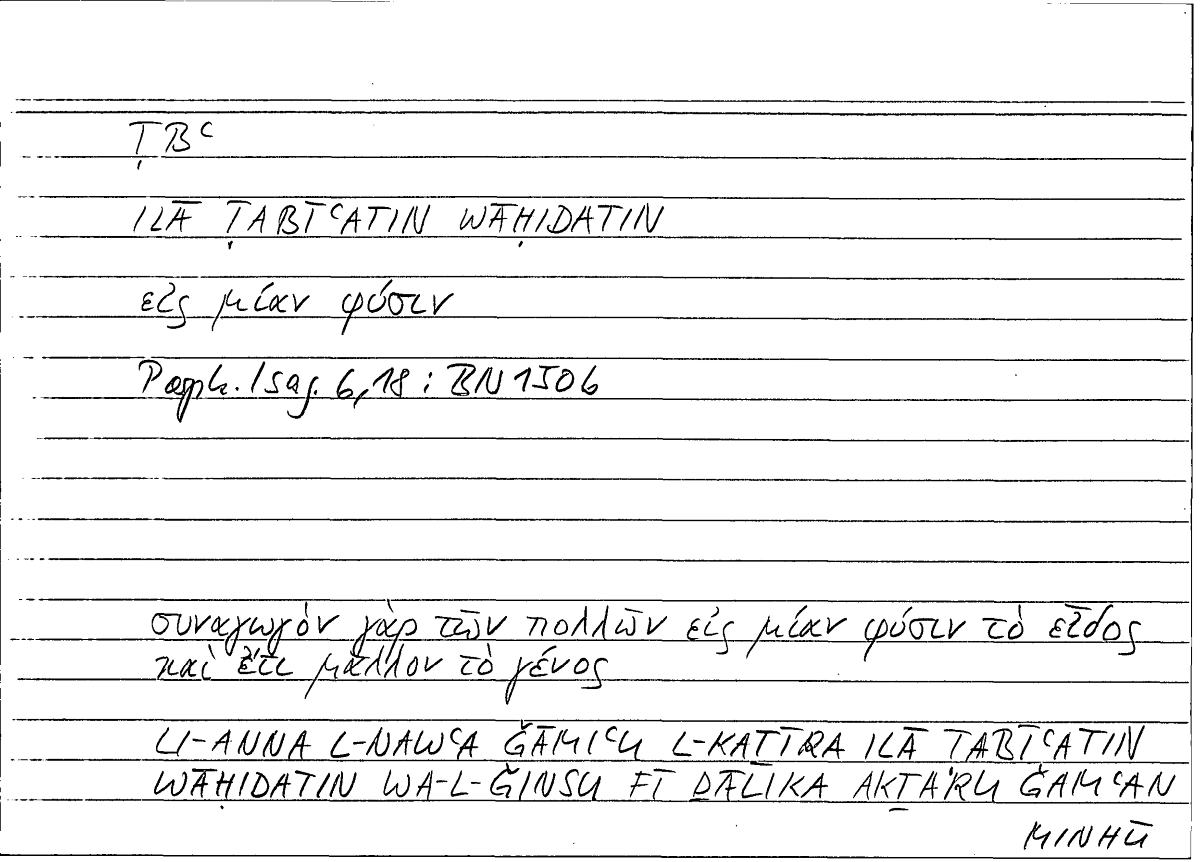 ṬBʿ
ILĀ ṬABĪʿATIN WĀḤIDATIN
εἰς μίαν φύσιν
Porph. Isag. 6,18 : BN 1506
συναγωγὸν γὰρ τῶν πολλῶν εἰς μίαν φύσιν τὸ εἶδος
καὶ ἔτι μᾶλλον τὸ γένος
LI-ANNA L-NAWʿA ǦĀMIʿU L-KAṮĪRA ILĀ TABĪʿATIN
WĀḤIDATIN WA-L-ǦINSU FĪ ḎĀLIKA AKṮARU ǦAMʿAN
MINHŪ